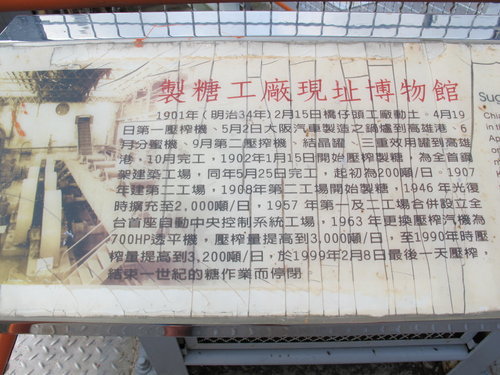 製糖工廠現址博物館
1901年(明治34年)2月15日橋仔頭工廠動土。4月19
日第一壓榨機、5月2日大阪汽車製造之鍋爐到高雄港、6
月分蜜機、9月第二壓榨機、結晶罐、三重效用罐到高雄
港,10月完工,1902年1月15日開始壓榨製糖,為全首鋼
架建築工場,同年5月25日完工,起初為200噸/日。1907
年建第二工場,1908年第二工場開始製糖,1946年光復
時擴充至2,000噸/日,1957年第一及二工場合併設立全
台首座自動中央控制系統工場,1963年更換壓榨汽機為
700HP透平機,壓榨量提高到3,000噸/日,至1990年時壓
榨量提高到3,200噸/日,於1999年2月8日最後一天壓榨,
結束一世紀的糖作業而停閉
Suc
Chi
in t
Ap
op